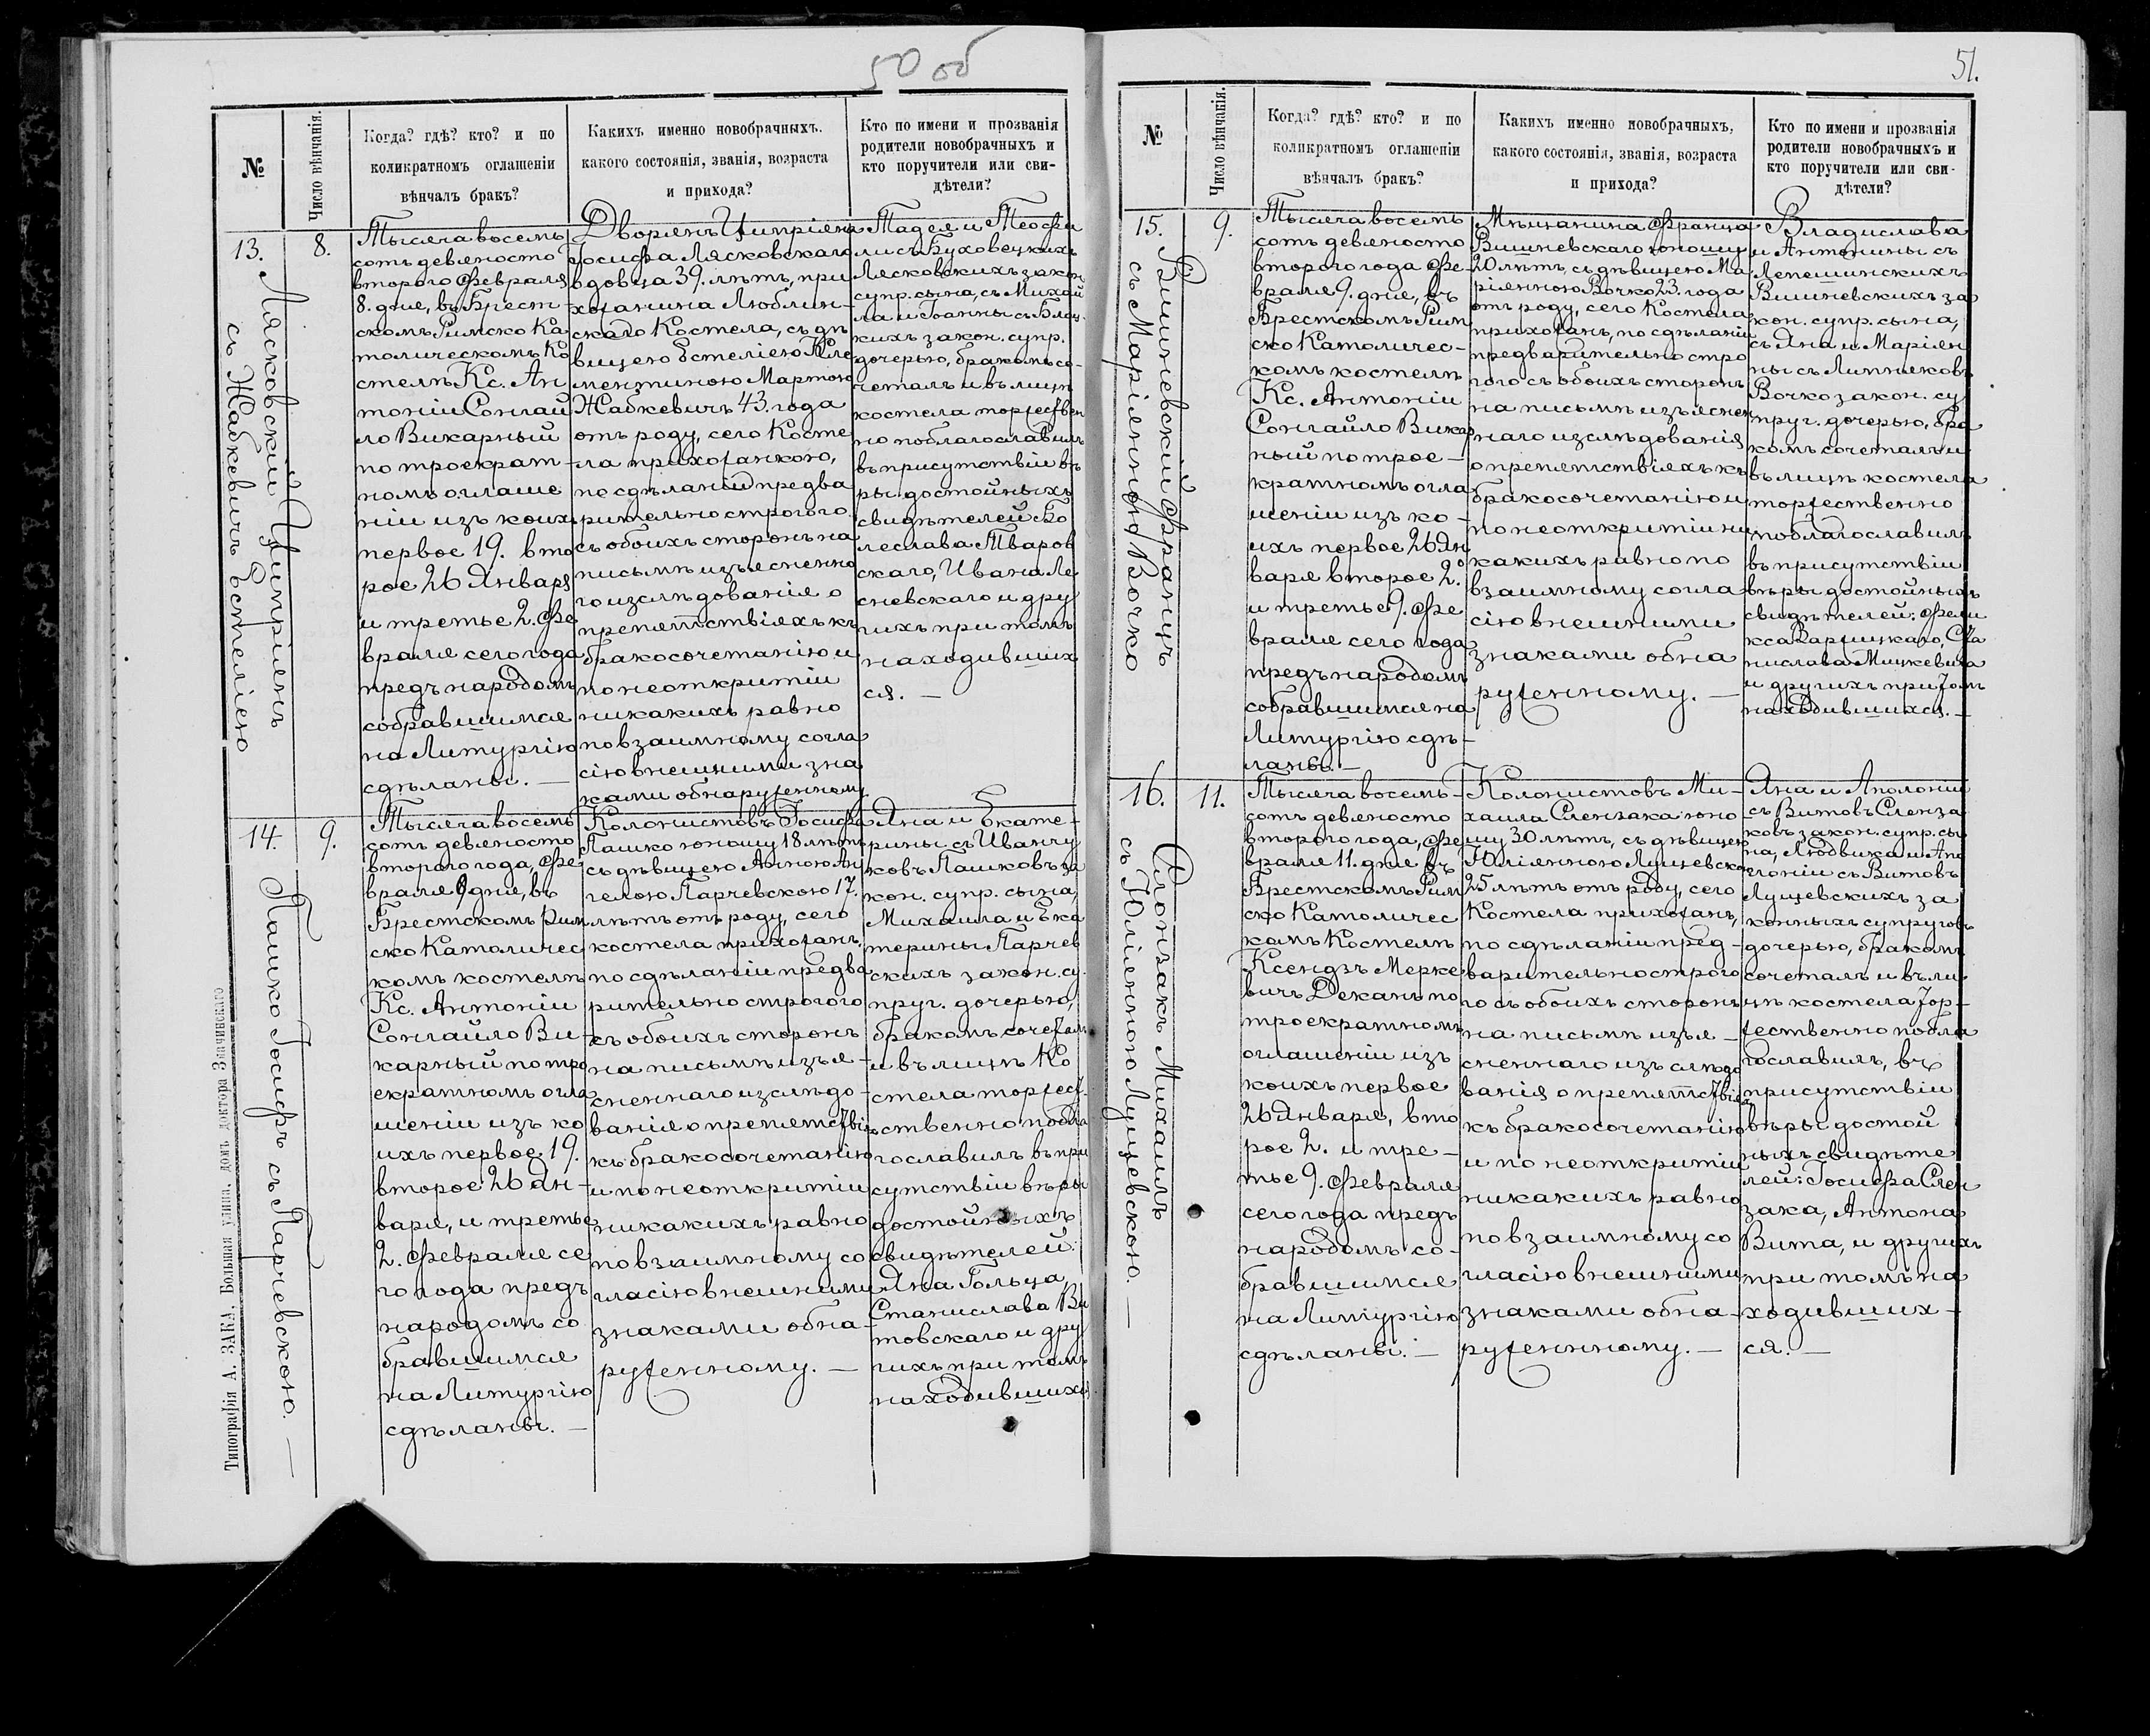 50 об
№
Число вѣнчанія.
Когда? гдѣ? кто? и по
коликратномъ оглашеніи
вѣнчалъ бракъ?
Какихъ именно новобрачныхъ.
какого состоянія, званія, возраста
и прихода?
Кто по имени и прозванія
родители новобрачныхъ и
кто поручители или сви-
дѣтели?
13.
Лясковскій Ципріянъ
съ Жабкевичъ Естеліею
8.
Тысяча восемь
сотъ девяносто
второго Февраля
8. дня, въ Брест-
скомъ Римско Ка
толическомъ Ко
стелѣ Кс. Ан
тоніи Сонгай
ло Викарный
по троекрат-
номъ оглаше
ніи изъ коихъ
первое 19. вто
рое 26 Января
и третье 2. Фе
враля сего года
предъ народомъ
собравшимся
на Литургію
сдѣланы. —
Дворянъ Ципріяна
Іосифа Лясковскаго
вдовца 39. лѣтъ, при
хожанина Люблин-
скаго Костела, съ дѣ
вицею Естеліею Кле
ментиною Мартою
Жабкевичъ 43. года
отъ роду, сего Косте
ла прихожанкою,
по сдѣланіи предва
рительно строгого
съ обоихъ сторонъ на
письмѣ изъясненно
го изслѣдованія о
препятствіяхъ къ
бракосочетанію и
по неоткритіи
никакихъ равно
по взаимному согла
сію внешними зна
ками обнаруженному
Тадея и Теофи
ли съ Буховецкихъ
Лясковскихъ закон.
супр. сына, съ Михаи
ла и Іоанны съ
кихъ закон. супр.
дочерью, бракомъ со-
четалъ и въ лицѣ
костела торжествен
но поблагославилъ
въ присутствіи вѣ
ры достойныхъ
свидѣтелей Бо
леслава
скаго, Ивана Ле
сневскаго и дру
гихъ при томъ
находивших
ся. —
14.
Пашко Іосифъ съ Парчевскою. —
9.
Тысяча восемь
сотъ девяносто
второго года, Фе
враля 9 дня, въ
Брестскомъ Рим
ско Католичес
комъ костелѣ
Кс. Антоніи
Сонгайло Ви-
карный по тро
екратномъ огла
шеніи изъ ко
ихъ первое 19.
второе 26 Ян-
варя, и третье
2. Февраля се
го года предъ
народомъ со
бравшимся
на Литургію
сдѣланы. —
Колонистовъ Іосифа
Пашко юношу 18 лѣтъ
съ дѣвицею Анною Ан
гелою Парчевскою 17.
лѣтъ отъ роду, сего
костела прихожанъ,
по сдѣланіи предва
рительно строгого
съ обоихъ сторонъ
на письмѣ изъя-
сненнаго изслѣдо-
ванія о препятствіяхъ
къ бракосочетанію
и по неоткритіи
никакихъ равно
по взаимному со
гласію внешними
знаками обна-
руженному. —
Яна и Екате-
рины съ Иванчу
ковъ Пашковъ за
кон. супр. сына,
Михаила и Ека
терины Парчев
скихъ закон. су
пруг. дочерью,
бракомъ сочеталъ
и въ лицѣ Ко
стела торжест-
ственно побла
гославилъ въ при
сутствіи вѣры
достойныхъ
свидѣтелей:
Яна Гольца,
Станислава Ви
товскаго и дру
гихъ при томъ
находившихся
Типографія А. ЗАКА, Большая улица, домъ доктора Значинскаго
51.
№
Число вѣнчанія.
Когда? гдѣ? кто? и по
коликратномъ оглашеніи
вѣнчалъ бракъ?
Какихъ именно новобрачныхъ,
какого состоянія, званія, возраста
и прихода?
Кто по имени и прозванія
родители новобрачныхъ и
кто поручители или сви-
дѣтели?
15.
Вишневскій Францъ
съ Маріянною Вочко
9.
Тысяча восемь
сотъ девяносто
второго года Фе-
враля 9. дня, въ
Брестскомъ Рим
ско Католичес-
комъ костелѣ
Кс. Антоніи
Сонгайло Викар
ный по трое-
кратномъ огла
шеніи изъ ко-
ихъ первое 26 Ян
варя второе 2.
и третье 9. Фе
враля сего года
предъ народомъ
собравшимся на
Литургію сдѣ-
ланы. —
Мѣщанина Франца
Вишневскаго юношу
20 лѣтъ, съ дѣвицею Ма
ріянною Вочко 23. года
отъ роду, сего Костела
прихожанъ, по сдѣланіи
предварительно стро
гого съ обоихъ сторонъ
на письмѣ изъяснен
наго изслѣдованія
о препятствіяхъ къ
бракосочетанію и
по неоткритіи ни
какихъ равно по
взаимному согла-
сію внешними
знаками обна
руженному. —
Владислава
и Антонины съ
Лепешинскихъ
Вишневскихъ за
кон. супр. сына,
съ Яна и Маріян
ны съ Липняковъ
Вочко закон. су
пруг. дочерью, бра
комъ сочеталъ и
въ лицѣ костела
торжественно
поблагославилъ
въ присутствіи
вѣры достойныхъ
свидѣтелей: Фели
кса Каржицкаго, Ста
нислава Мицкевича
и другихъ при томъ
находившихся. —
16.
Слонзакъ Михаилъ
съ Юліянною Луцевскою. —
11.
Тысяча восемь-
сотъ девяносто
второго года, Фе
враля 11. дня въ
Брестскомъ Рим
ско Католичес
комъ Костелѣ
Ксендзъ Мерке
вичъ Деканъ по
троекратномъ
оглашеніи изъ
коихъ первое
26 Января, вто
рое 2. и тре-
тье 9. Февраля
сего года предъ
народомъ со-
бравшимся
на Литургію
сдѣланы. —
Колонистовъ Ми-
хаила Слензака юно
шу 30 лѣтъ, съ дѣвицею
Юліянною Луцевскою
25 лѣтъ отъ роду, сего
Костела прихожанъ,
по сдѣланіи пред-
варительно строго
го съ обоихъ сторонъ
на письмѣ изъя-
сненнаго изъ слѣдо
ванія о препятствіяхъ
къ бракосочетанію
и по неоткритіи
никакихъ равно
по взаимному со
гласію внешними
знаками обна-
руженному. —
Яна и Аполоніи
съ Витовъ Слензa
ковъ закон. супр. сы
на, Людвика и Апо
лоніи съ Витовъ
Луцевскихъ за
конныхъ супруговъ
дочерью, бракомъ
сочеталъ и въ ли
цѣ костела тор-
жественно побла
гославилъ, въ
присутствіи
вѣры достой
ныхъ свидѣте
лей: Іосифа Слен
зака, Антона
Вита, и другихъ
при томъ на
ходивших-
ся. —